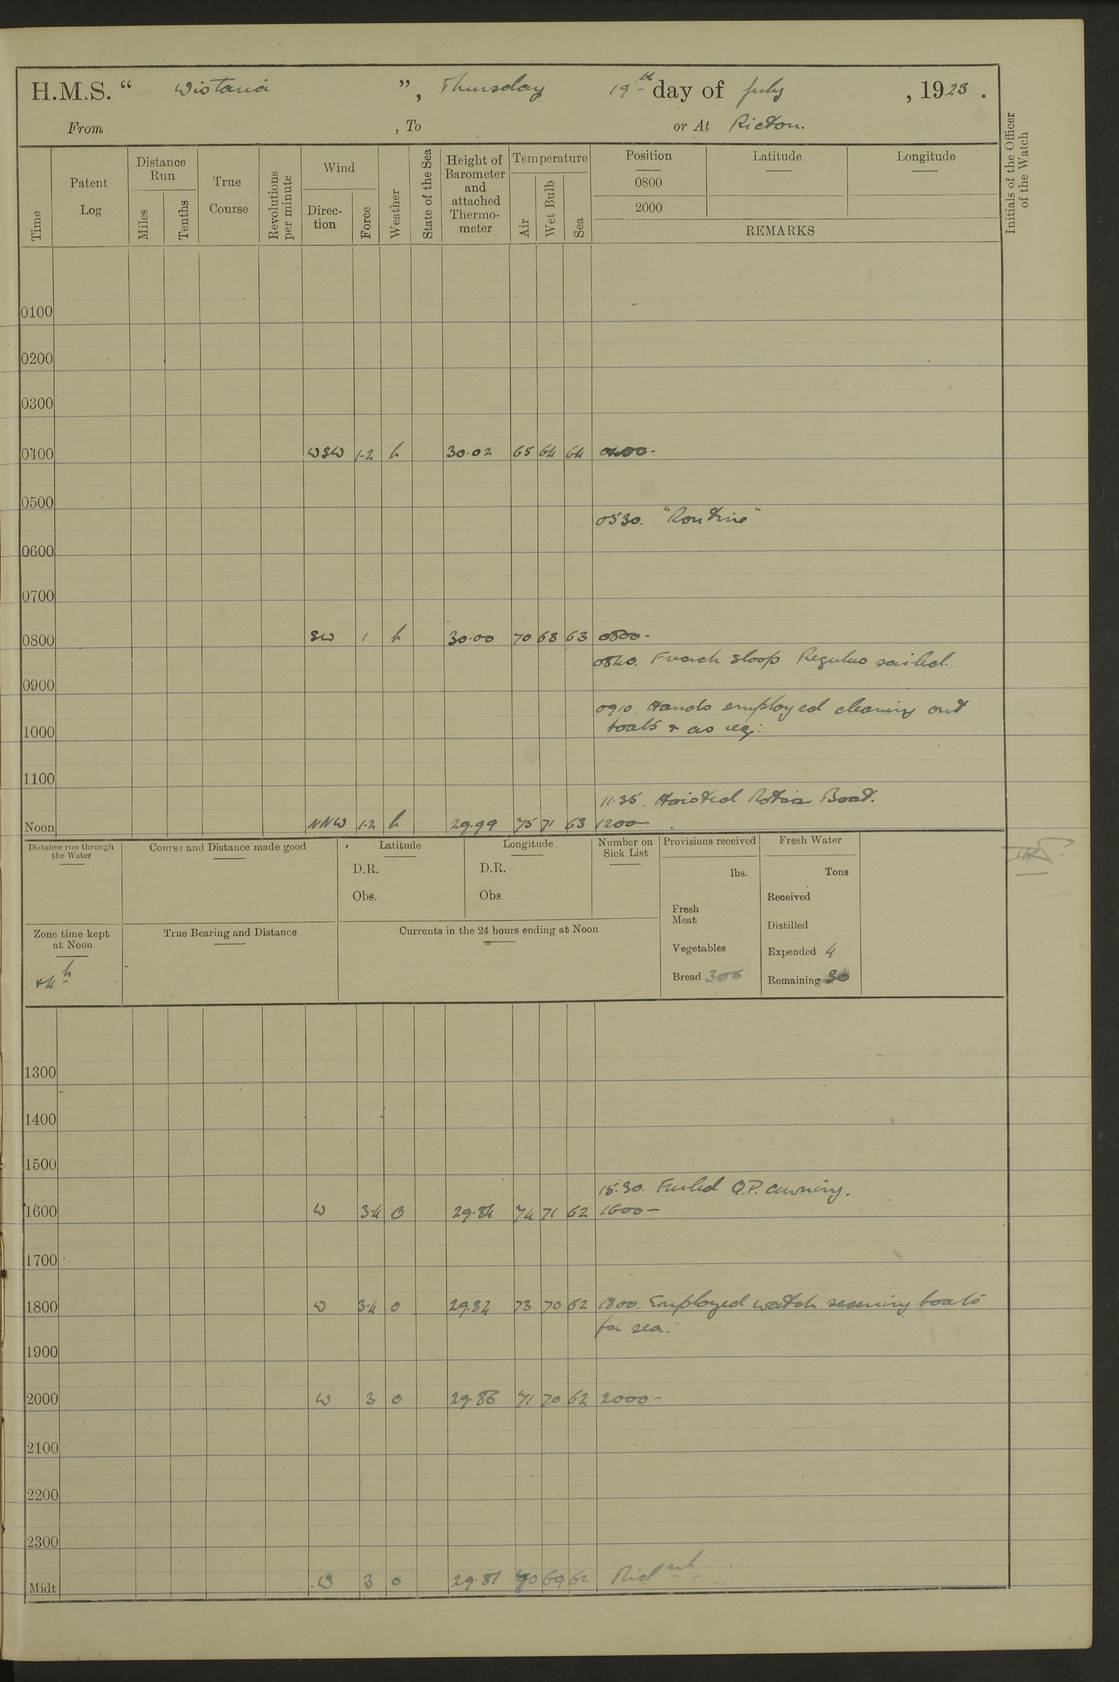 H.M.S. “ Wistaria ”, Thursday 19th day of July , 1923 .
From , To or At Picton.
Time
Patent Log
Distance Run
Miles
Tenths
True Course
Revolutions per minute
Wind
Direction
Force
Weather
State of the Sea
Height of Barometer and attached Thermometer
Temperature
Air
Wet Bulb
Sea
Position Latitude Longitude
0800
2000
REMARKS
Initials of the Officer of the Watch
0100
0200
0300
0400 WSW 1-2 b 30·02 65 64 64 0400-
0500
0530. "Routine"
0600
0700
0800 SW 1 b 30·00 70 68 63 0800-
0840. French sloop Regulus sailed.
0900
0910. Hands employed cleaning out
boats & as req:
1000
1100
11·35. Hoisted Boat.
Noon NNW 1-2 b 29.99 75 71 63 1200-
Distance run through the Water
Course and Distance made good
Latitude
D.R.
Obs.
Longitude
D.R.
Obs
Number on Sick List
Provisions received
lbs.
Fresh Meat
Vegetables
Bread 306
Fresh Water
Tons
Received
Distilled
Expended 4
Remaining 30
Zone time kept at Noon
+4h
True Bearing and Distance
Currents in the 24 hours ending at Noon
1300
1400
1500
15·30. Furled Q.P. awning.
1600 W 3·4 o 29·84 74 71 62 1600-
1700
1800 W 3·4 o 29.82 73 70 62 1800. Employed watch securing boats
for sea.
1900
2000 W 3 o 29·86 71 70 62 2000-
2100
2200
2300
Midt W 3 o 29·81 70 69 62